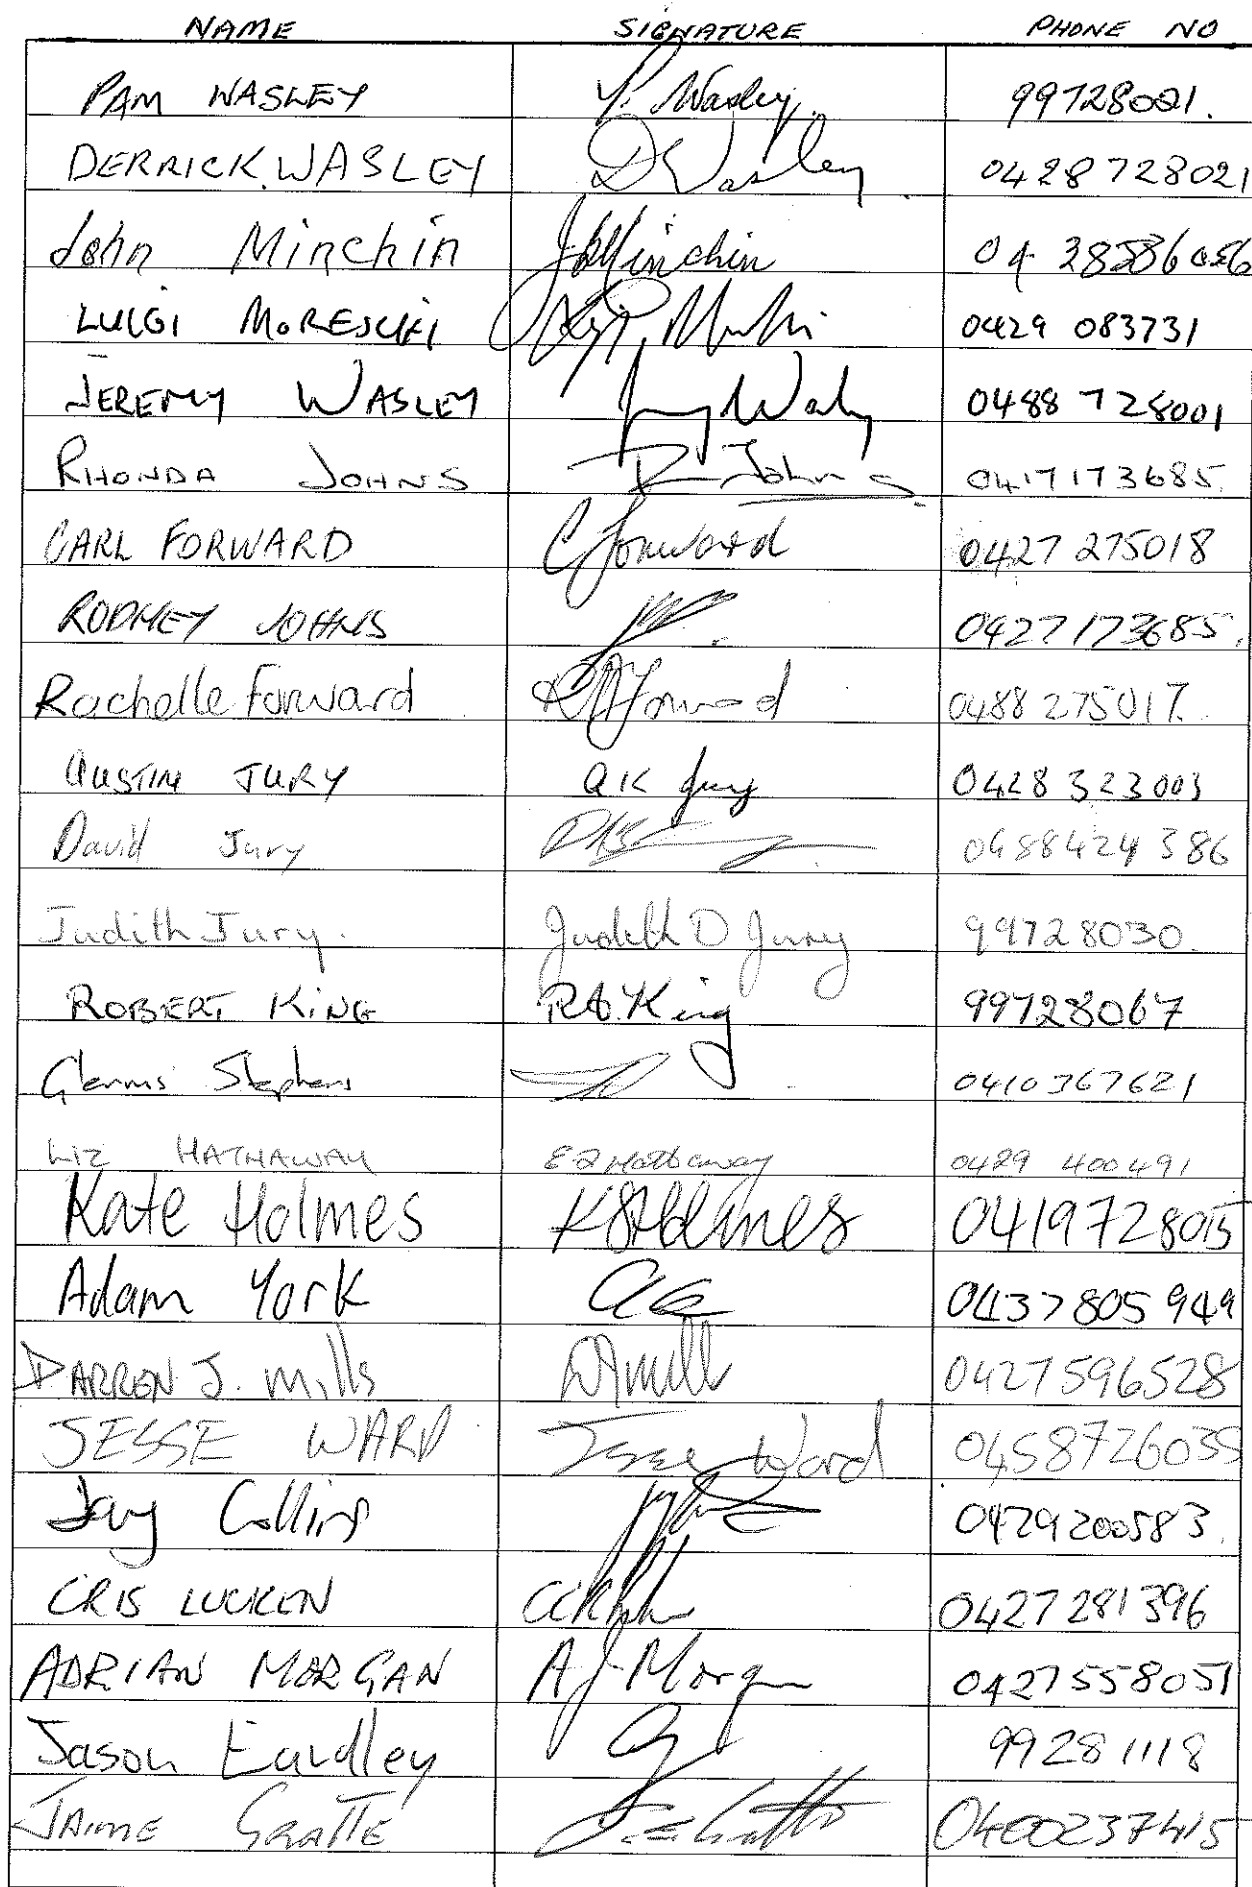 NAME SIGNATURE PHONE NO
PAM WASLEY P. Wasley. 99728021.
DERRICK. WASLEY D Wasley 0428 728021
John Minchin J Minchin
LUIGI MORESCHI 0429 083731
JEREMY WASLEY 0488 728001
RHONDA JOHNS R Johns 0417173685.
CARL FORWARD C Forward 0427 275018
RODNEY JOHNS 0427173685.
Rachelle Forward Forward 0488 275017.
AUSTIN JURY A K Jury 0428 323003
David Jury 0488424 386
Judith Jury. Judith D Jury 99728030.
ROBERT KING King 99728067
Glennis Stephens 0410367621
LIZ HATHAWAY Hathaway 0429 400491
Kate Holmes K S Holmes 0419728015
Adam York 0437805 949
DARREN J. Mills 0427596528
JESSE WARD Jesse Ward 0458726035
Jay Collins 0429200583.
CRIS LUCKEN 0427 281396
ADRIAN MORGAN A J Morgan 0427558051
Jason Eardley 99281118
JAIME GRATTE 0400237415